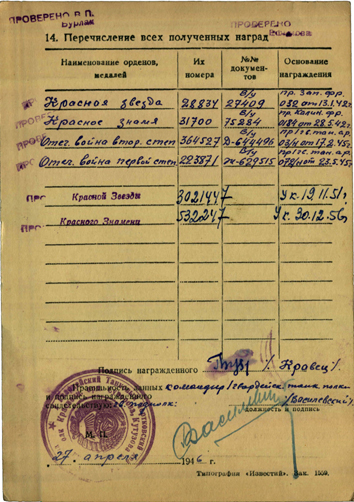 ПРОВЕРЕНО В.П.
Бурлак
ПРОВЕРЕНО
14. Перечисление всех полученных наград
Наименование орденов, медалей
Их номера
№№ документов
Основание награждения
Красная звезда 28834 В/у 27409 пр. Зап. фр. 032 от 13.1.42г.
Красное знамя 31700 В/у 75284 пр. Калин. фр. 0184 от 28.5.42г.
Отеч. война втор. степ 364527 В/у 644496 03/н от 17.2.45г.
Отеч. война первой степ 223871 В/у 629515 072/н от 23.5.45г.
Красной Звезды 3021447 Ук. 19.11.51г.
Красного Знамени 532247 Ук. 30.12.56г.
Подпись награжденного / Кравец /
Правильность данных командир гвардейск. танк. полка
и подпись награжденного
свидетельствую: /Василевский/
должность и подпись
М. П.
27 апреля 1946 г.
Типография «Известий». Зак. 1559.